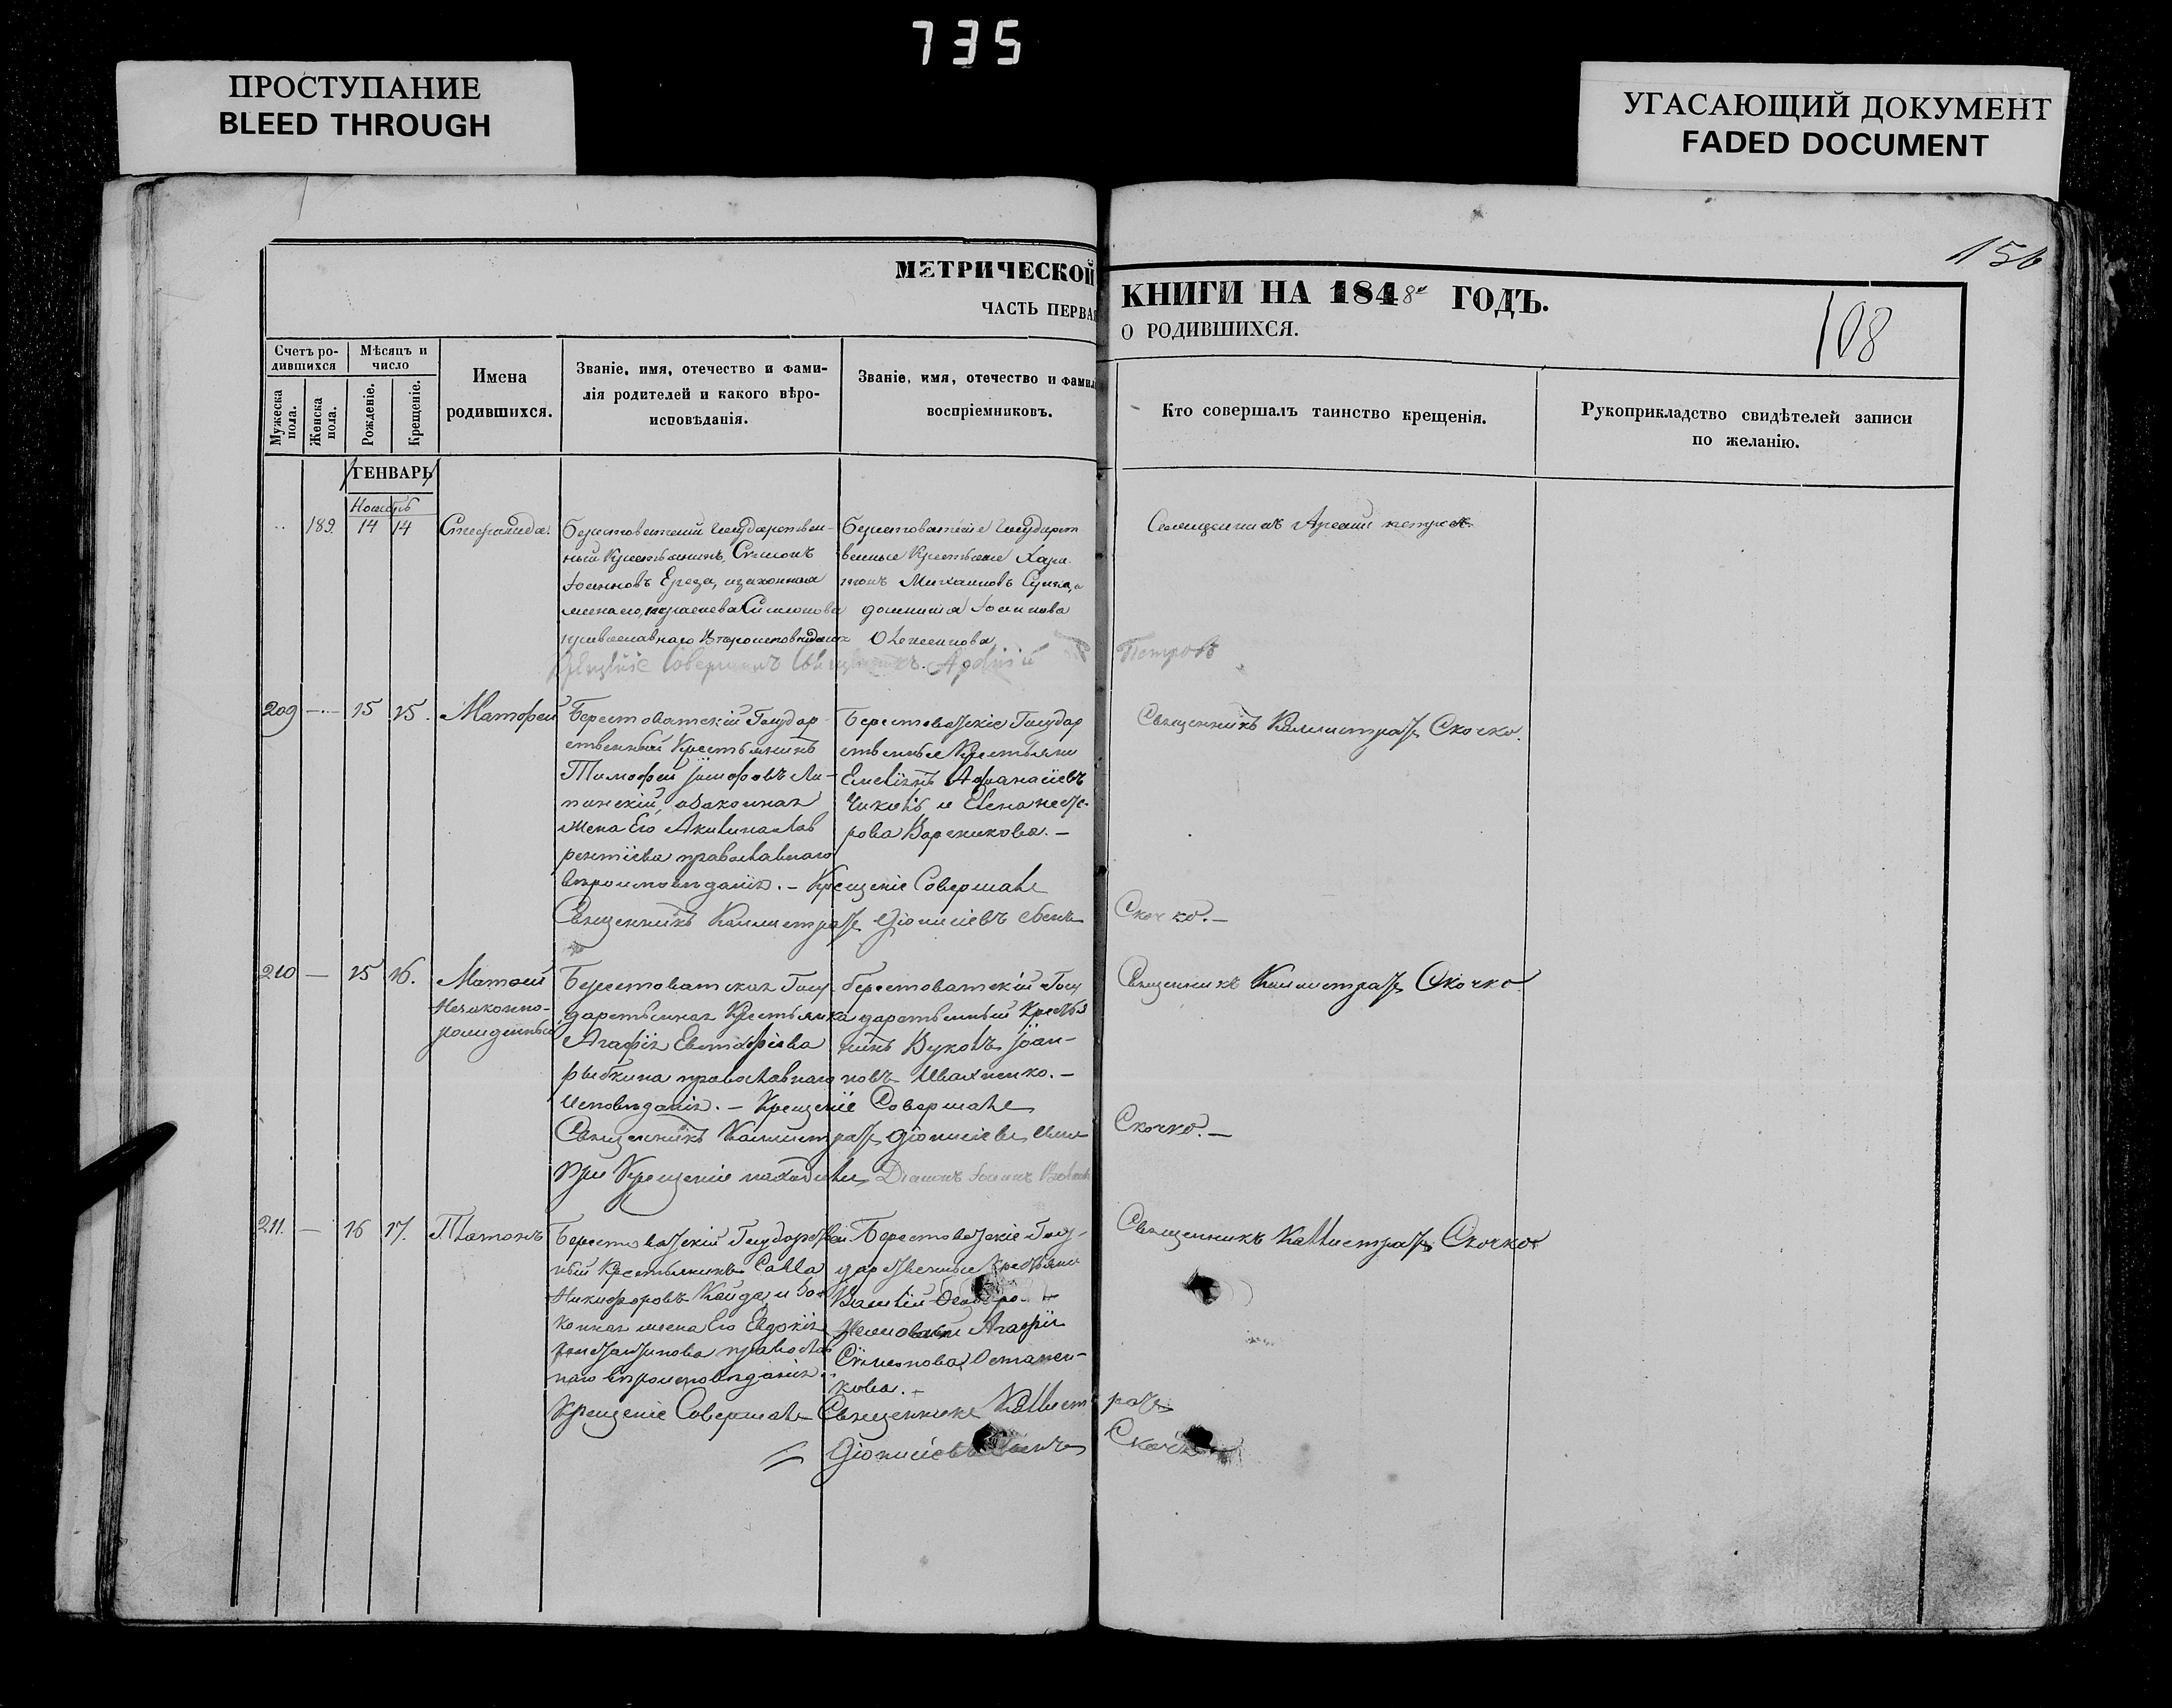 735
ПРОСТУПАНИЕ
BLEED THROUGH
УГАСАЮЩИЙ ДОКУМЕНТ
FADED DOCUMENT
156
108
МЕТРИЧЕСКОЙ КНИГИ НА 1848й ГОДЪ.
ЧАСТЬ ПЕРВАЯ О РОДИВШИХСЯ.
Счетъ ро-
дившихся
Мужеска пола.
Женска пола.
Мѣсяцъ и
число
Рожденіе.
Крещеніе.
Имена
родившихся.
Званіе, имя, отечество и фами-
лія родителей и какого вѣро-
исповѣданія.
Званіе, имя, отечество и фамил
воспріемниковъ.
Кто совершалъ таинство крещенія.
Рукоприкладство свидѣтелей записи
по желанію.
ГЕНВАРЬ
Ноябрь
189. 14 14 Стефанида.
Берестоватский государствен-
ный Крестьянинъ, Симонъ
Іоанновъ законная
жена его Симонова
православнаго Вѣроисповѣданія
Берестоватскіе государст
венные Крестьяне Хари
тонъ Михаиловъ
Іоаннова
Священникъ Арсений Петровъ
Крещеніе совершилъ священникъ Арсеній Петровъ
209 — 15 15. Матофей
Берестоватскій Государ-
ственный Крестьянинъ
Тимофей Іосифовъ Ли-
пинскій, и законная
жена Его Акилина Лав
рентіева православнаго
вѣроисповѣданія. — Крещеніе Совершалъ
Священникъ Каллистратъ Діонисіевъ сынъ Скочко. —
Берестоватскіе Государ
ственные Крестьяни
Емеліянъ Афанасіевъ
Чиковъ и Елена несте-
рова Вареникова. —
Священникъ Каллистратъ Скочко.
210 — 15 16. Матфей
Незаконно-
рожденный
Берестоватская Госу
дарственная Крестьянка
Агафія Евстафіева
рыбкина православнаго
исповѣданія. — Крещеніе Совершалъ
Священникъ Каллистратъ Діонисіевъ сынъ Скочко. —
При Крещеніе находился Діаконъ Іоаннъ
берестоватскій Госу
дарственный Крестья
нинъ Вуколъ Іоан-
новъ Ивахненко. —
Священникъ Каллистратъ Скочко
211. — 16 17. Платонъ
Берестоватскій Государствен
ный Крестьянинъ Савва
Никифоровъ Кайда, и за
конная жена Его Евдокія
Константинова православ
наго вѣроисповѣданія.
Берестоватскіе Госу-
дарственные Крестьяни
Василій
Агафія
Симонова Остапен-
кова. —
Священникъ Каллистратъ Скочко
Крещеніе Совершалъ Священникъ Каллистратъ
Діонисіевъ сынъ Скочко